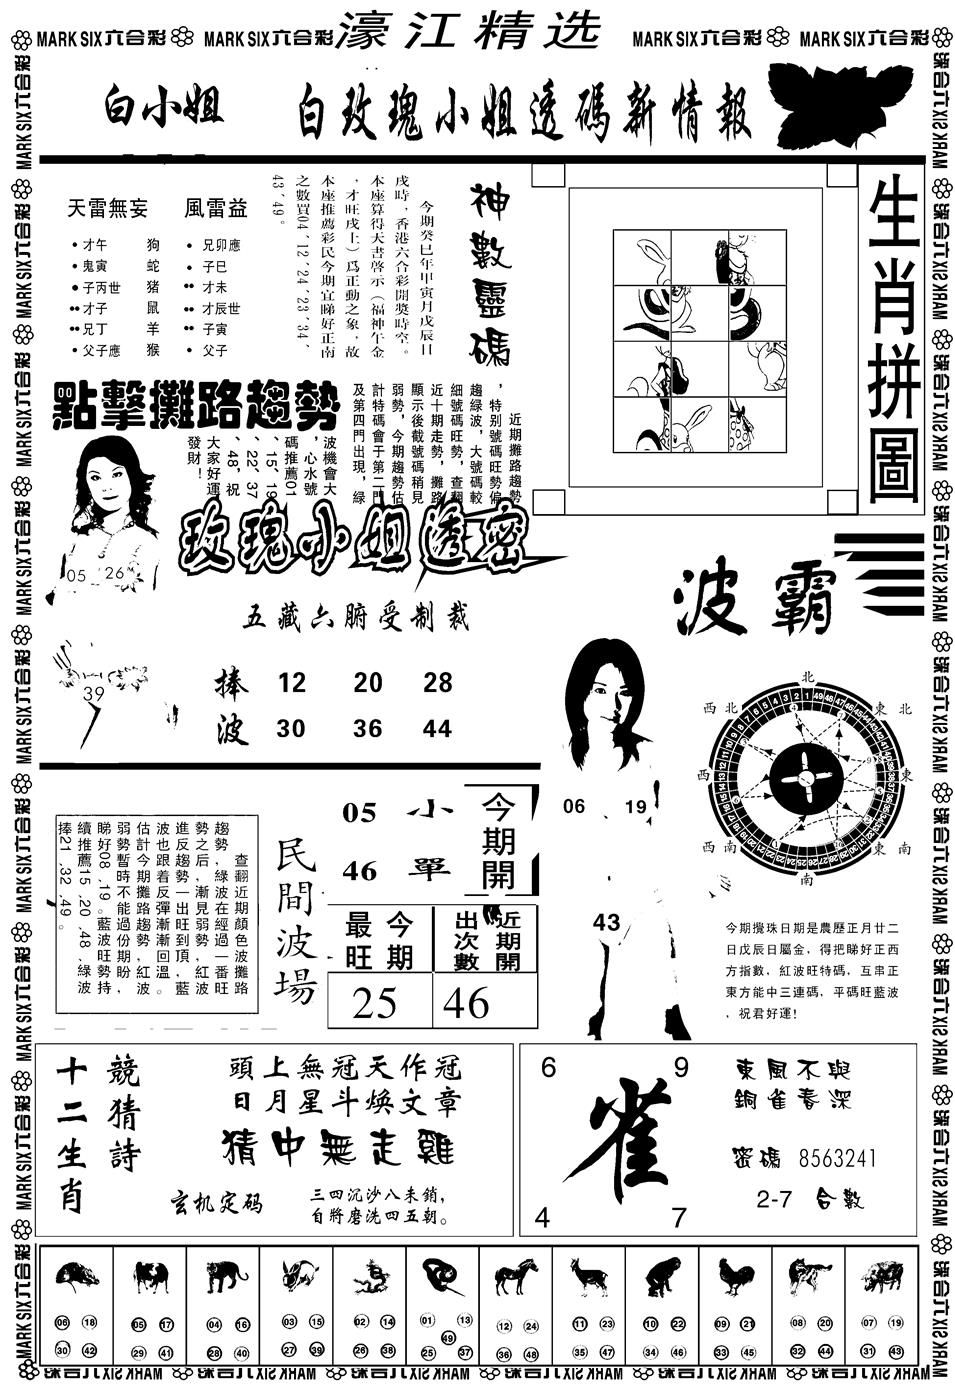 MARK SIX六合彩 MARK SIX六合彩 濠江精选 MARK SIX六合彩 MARK SIX六合彩
白小姐 白玫瑰小姐透碼新情報
天雷無妄 風雷益
才午 狗 兄卯應
鬼寅 蛇 子巳
子丙世 猪 才未
才子 鼠 才辰世
兄丁 羊 子寅
父子應 猴 父子
神數靈碼
今期癸巳年甲寅月戊辰日
戌時，香港六合彩開獎時空。
本座算得天書啓示（福神午金
，才旺戌上）爲正動之象，故
本座推薦彩民今期宜睇好正南
之數買04、12、24、23、34、
43、49。
生肖拼圖
點擊攤路趨勢
近期攤路趨勢
，特别號碼旺勢偏
趨緑波，大號碼較
細號碼旺勢，查翻
近十期走勢，攤路
顯示後截號碼稍見
弱勢，今期趨勢估
計特碼會于第二門
及第四門出現，緑
波機會大
，心水號
碼推薦01
、15、19
、22、37
、48，祝
大家好運
發財！
05 26
39
玫瑰小姐透密
五藏六腑受制裁
捧 12 20 28
波 30 36 44
波霸
06 19
43
北
西北 東北
西 東
西南 東南
南
今期攪珠日期是農歷正月廿二
日戊辰日屬金，得把睇好正西
方指數，紅波旺特碼，互串正
東方能中三連碼，平碼旺藍波
，祝君好運！
查翻近期顔色波攤路
趨勢，緑波在經過一番旺
勢之后，漸見弱勢，紅波
進反趨勢一出旺到頂，藍
波也跟着反彈漸漸回溫。
估計今期攤路趨勢紅波
弱勢暫時不能過份期盼，
睇好08、19。藍波旺勢持
續推薦15、20、48，緑波
捧21、32、49。
民間波場
05 小 今期開
46 單
最旺 今期 出次數 近期開
25 46
競猜詩
十二生肖
頭上無冠天作冠
日月星斗焕文章
猜中無走雞
玄机定码
三四沉沙八未銷，
自將磨洗四五朝。
6 9
雀
4 7
東風不與
銅雀春深
密碼 8563241
2-7 合數
06 18 05 17 04 16 03 15 02 14 01 13 12 24 11 23 10 22 09 21 08 20 07 19
49
30 42 29 41 28 40 27 39 26 38 25 37 36 48 35 47 34 46 33 45 32 44 31 43